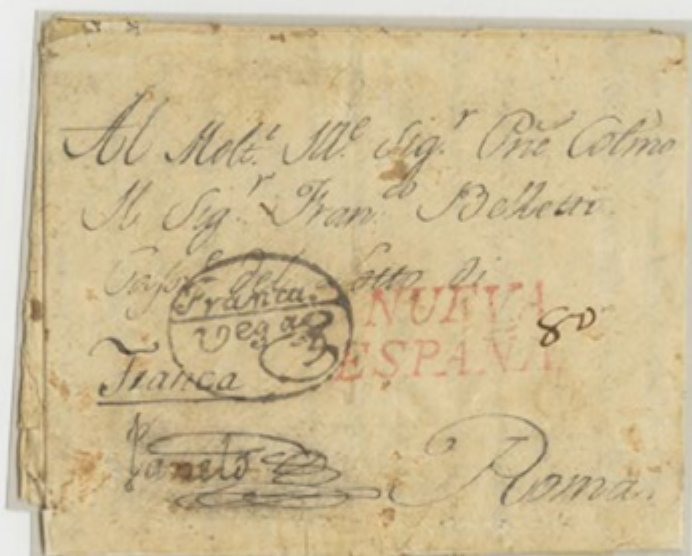 Al Molt.e Ill.e Sig.r Pne Colmo
Il Sig.r Fran.co Belletti
del Lotto di
Franca
Vega
NUEVA
ESPAÑA
80
Franca
Roma.